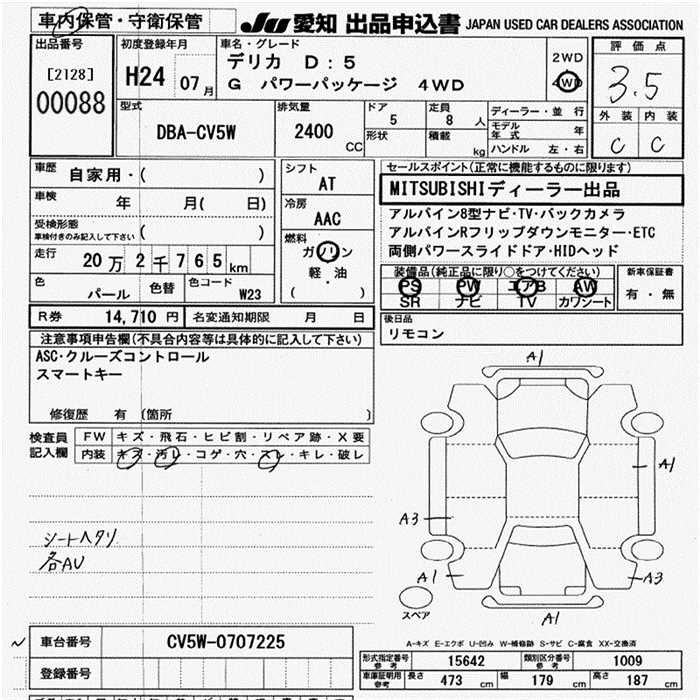 車内保管・守衛保管
JU 愛知 出品申込書 JAPAN USED CAR DEALERS ASSOCIATION
出品番号
[2128]
00088
初度登録年月
H24 07月
車名・グレード
デリカ D:5
G パワーパッケージ 4WD
2WD
4WD
評価点
3.5
外装 内装
C C
型式
DBA-CV5W
排気量
2400 CC
ドア
5
形状
定員
8 人
積載
kg
ディーラー・並行
モデル年式 年
ハンドル 左・右
車歴
自家用・( )
車検
年 月( 日)
受検形態
車検付きのみ記入して下さい ( )
走行
20万2千765km
色
パール
色替
色コード
W23
シフト
AT
冷房
AAC
燃料
ガソリン
軽・油
( )
セールスポイント(正常に機能するものに限ります)
MITSUBISHIディーラー出品
アルパイン8型ナビ・TV・バックカメラ
アルパインRフリップダウンモニター・ETC
両側パワースライドドア・HIDヘッド
装備品(純正品に限り○をつけてください)
PS PW エアB AW
SR ナビ TV カワシート
新車保証書
有・無
R券 14,710 円
名変通知期限 月 日
後日品
リモコン
注意事項申告欄(不具合内容等は具体的に記入して下さい)
ASC・クルーズコントロール
スマートキー
修復歴 有 (箇所 )
検査員記入欄
FW キズ・飛石・ヒビ割・リペア跡・X要
内装 キズ・汚レ・コゲ・穴・スレ・キレ・破レ
シートヘタリ
各AU
A1
A1
A3
A1
A3
A1
スペア
A-キズ E-エクボ U-凹み W-補修跡 S-サビ C-腐食 XX-交換済
車台番号 CV5W-0707225
登録番号
形式指定番号 参考 15642
類別区分番号 参考 1009
車庫証明用 参考 長さ 473 cm 幅 179 cm 高さ 187 cm